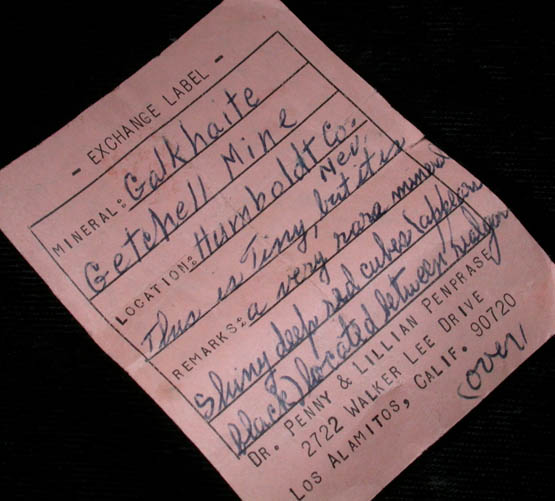 - EXCHANGE LABEL -
MINERAL: Galkhaite
Getchell Mine
LOCATION: Humboldt Co. Nev.
This is Tiny, but it is
REMARKS: a very rare mineral
Shiny deep red cubes (appears
black) located between
DR. PENNY & LILLIAN PENPRASE
2722 WALKER LEE DRIVE
LOS ALAMITOS, CALIF. 90720
(over)